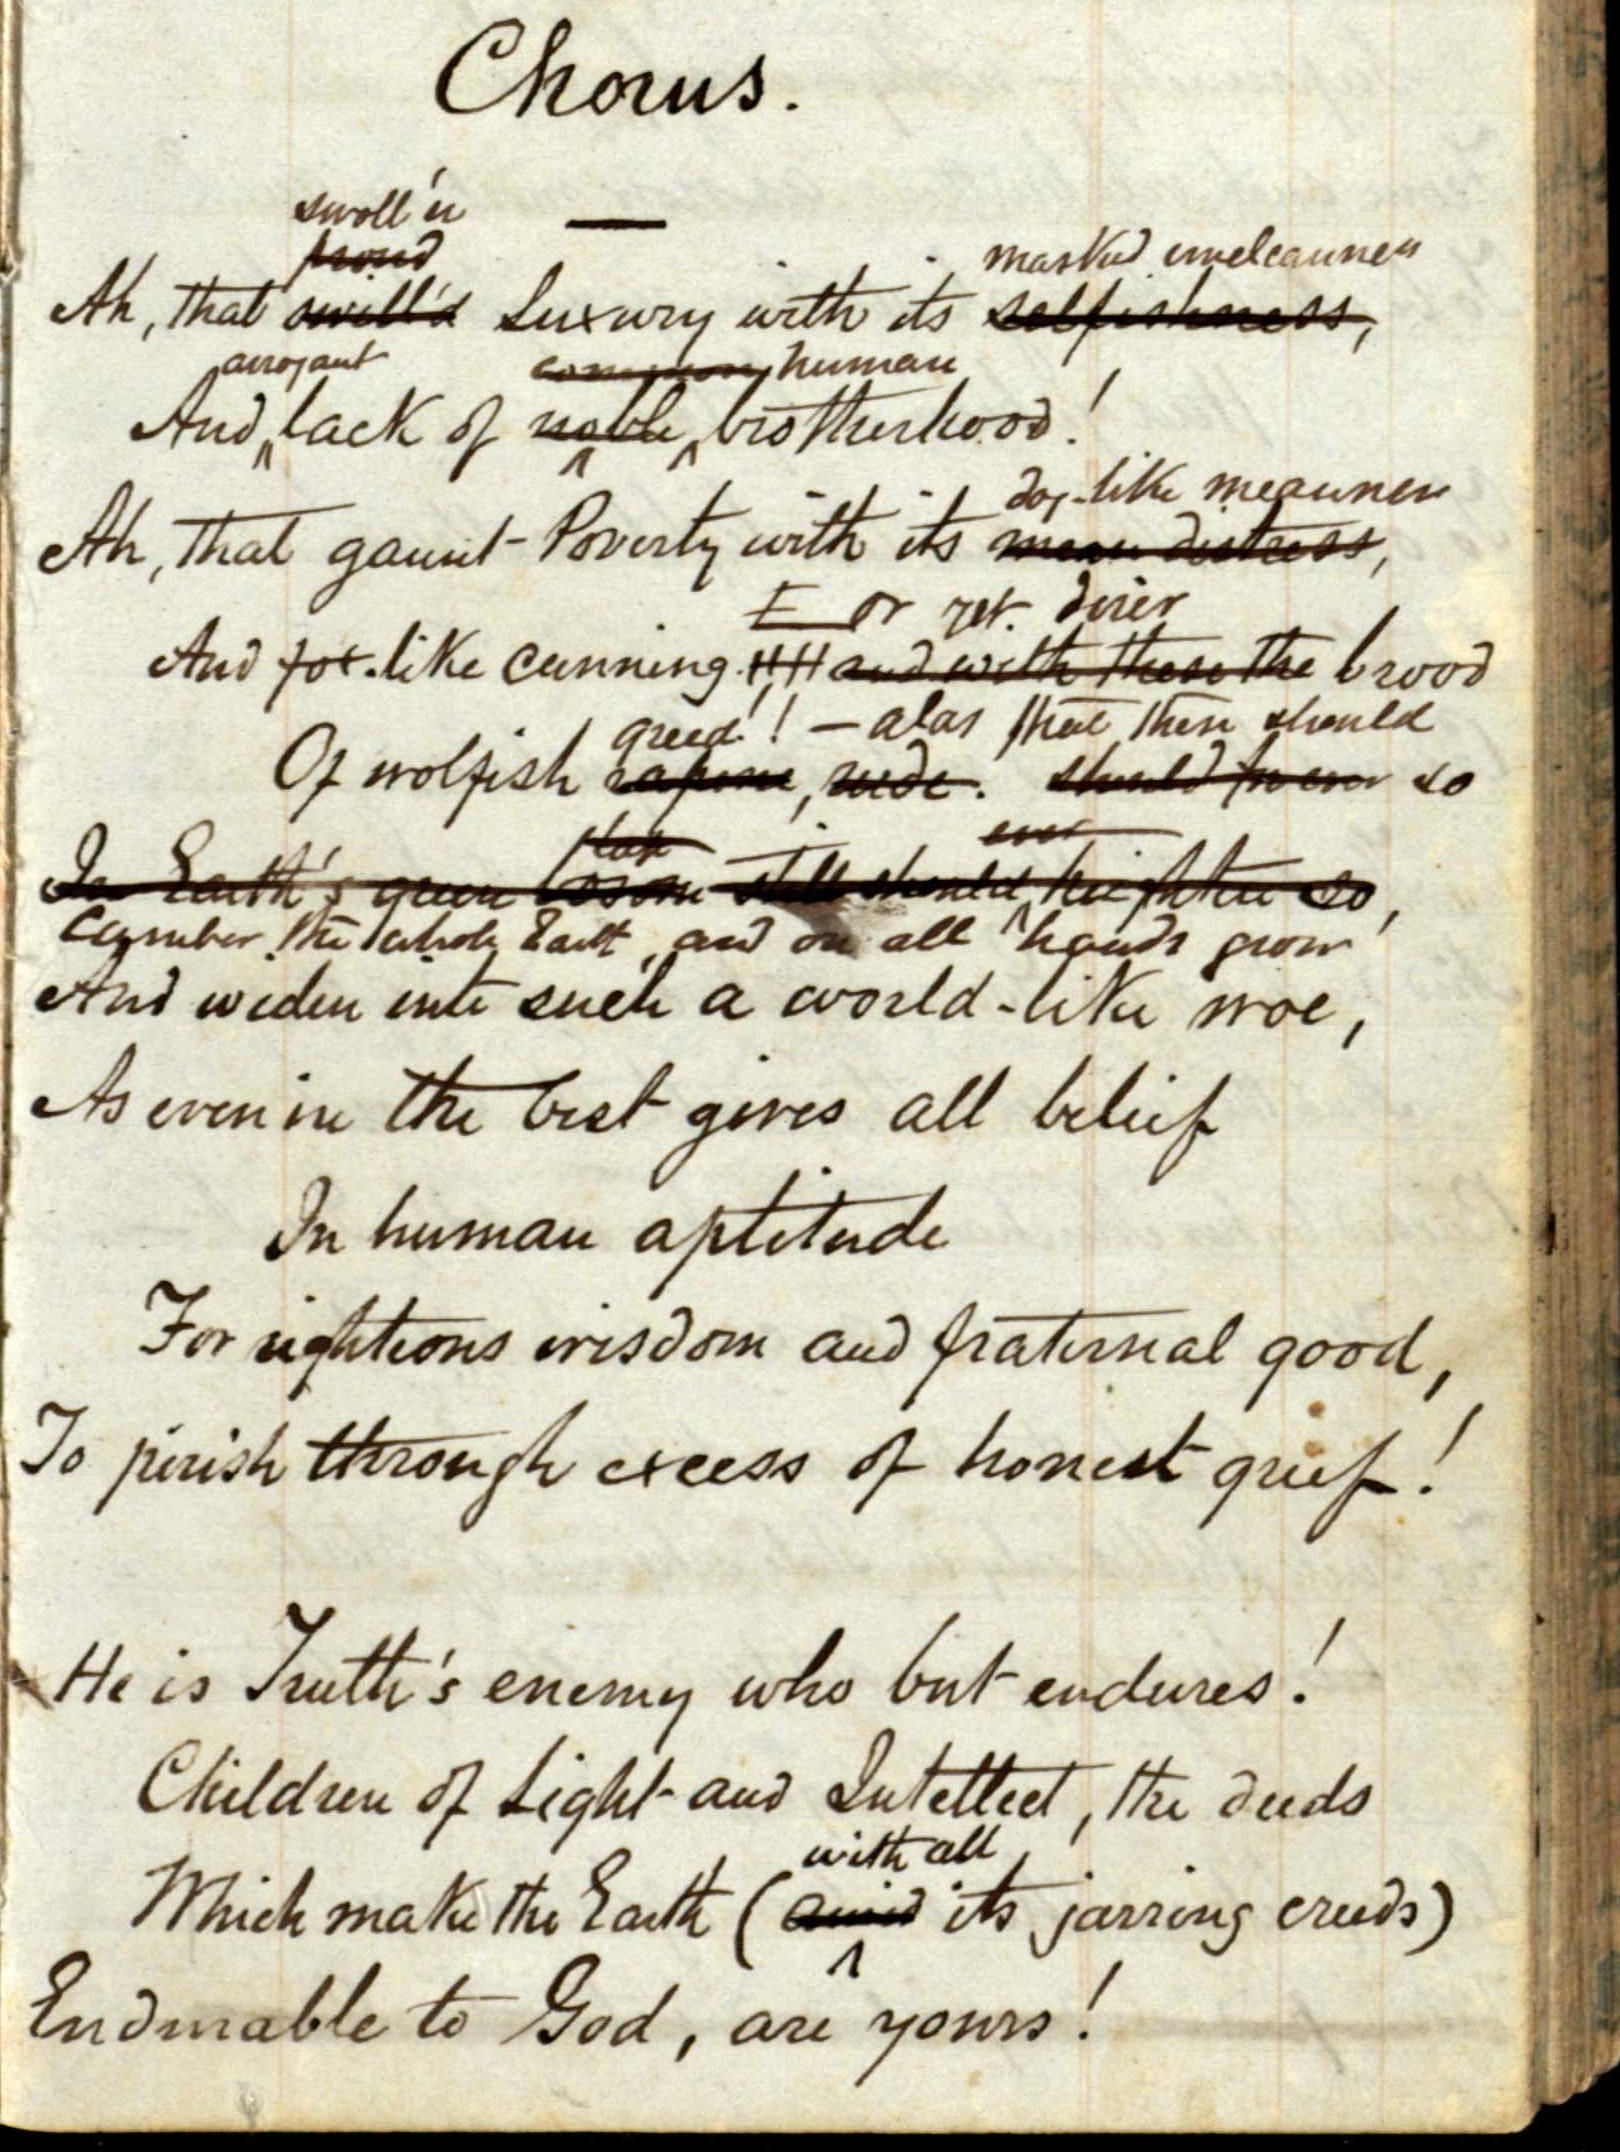 Chorus.
swoll'n
proud
masked uncleanness
Ah, that swill'd Luxury with its selfishness,
arrogant common human
And lack of noble brotherhood!
dog-like meanness
Ah, that gaunt Poverty with its mean distress,
or yet direr
And fox-like cunning and with these the brood
greed! — alas that these should
Of wolfish rapine, rude. should forever so
ever
In Earth's green bosom still should heighten so,
Cumber the whole Earth, and on all hands grow
And widen into such a world-like woe,
As even in the best gives all belief
In human aptitude
For righteous wisdom and fraternal good,
To perish through excess of honest grief!
He is Truth's enemy who but endures!
Children of Light and Intellect, the deeds
with all
Which make the Earth (amid its jarring creeds)
Endurable to God, are yours!